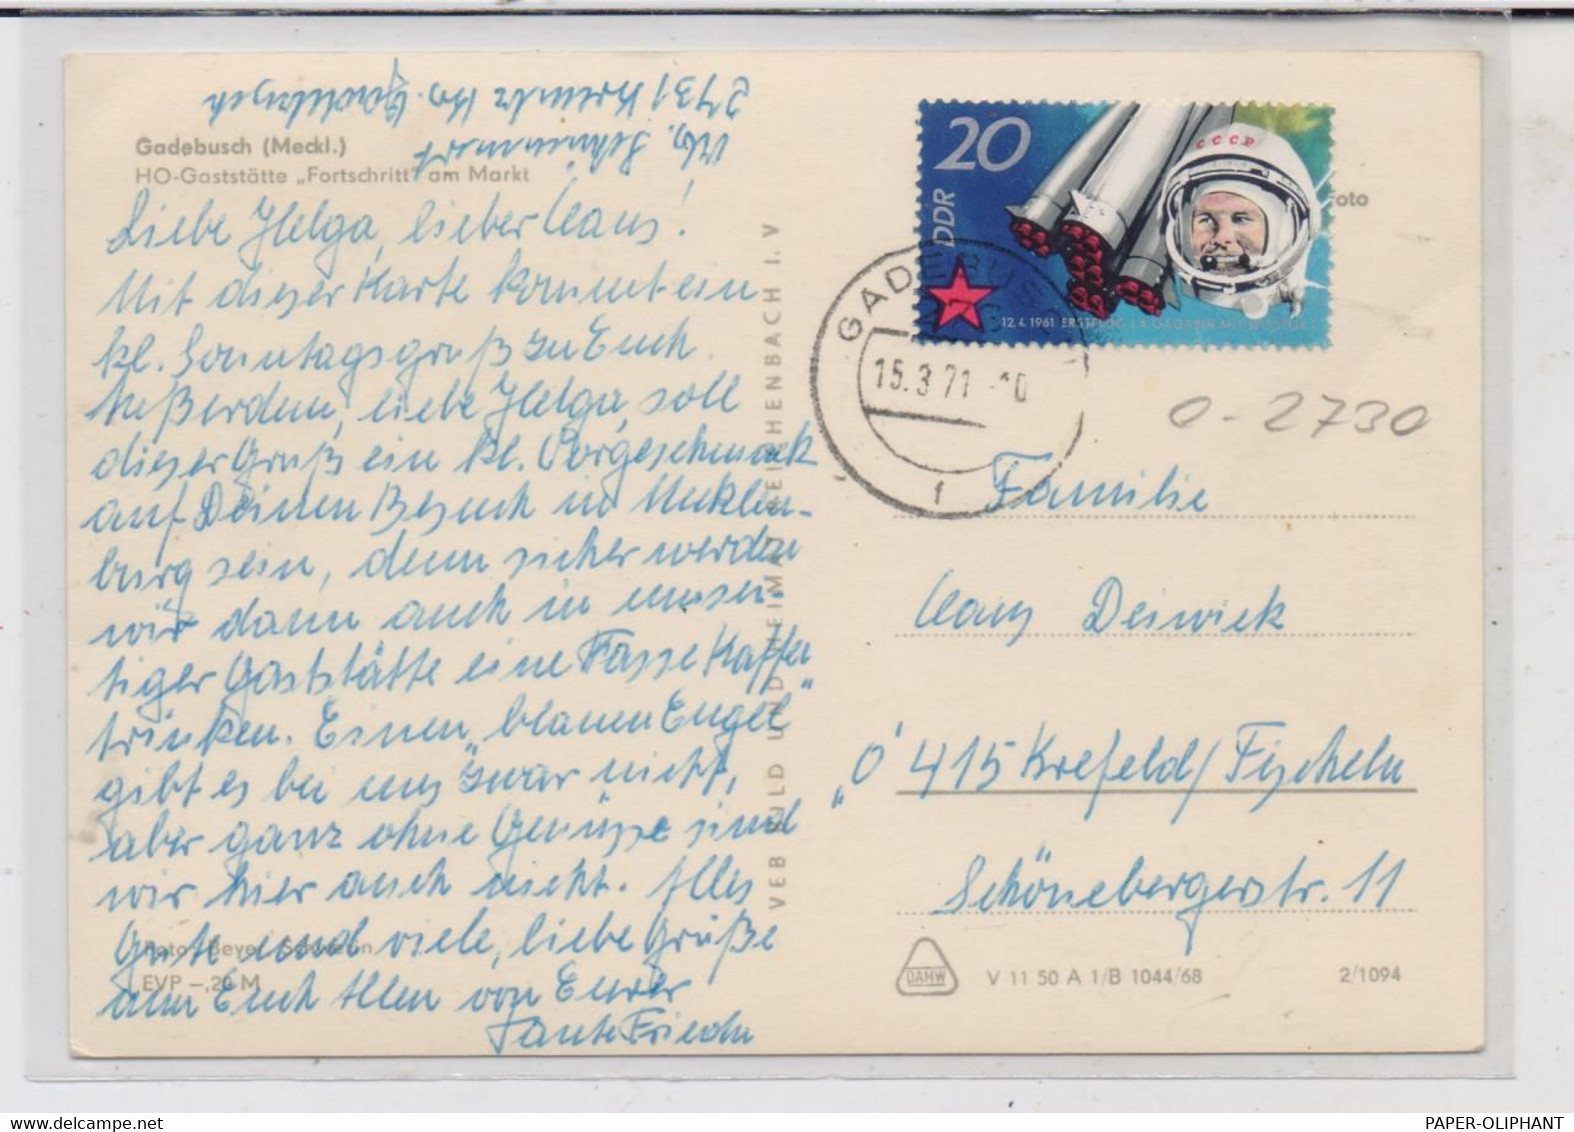 2731 Krembz Kr. Gadebusch
Gadebusch (Meckl.)
HO-Gaststätte „Fortschritt" am Markt
Liebe Helga, lieber Claus!
Mit dieser Karte kommt ein
kl. Sonntagsgruß zu Euch.
Außerdem, liebe Helga, soll
dieser Gruß ein kl. Vorgeschmack
auf Deinen Besuch in Mecklen-
burg sein, denn sicher werden
wir dann auch in unser
tiger Gaststätte eine Tasse Kaffee
trinken. Einen „blauen Engel"
gibt es bei uns zwar nicht,
aber ganz ohne Genüsse sind
wir hier auch nicht. Alles
Gute und viele, liebe Grüße
an Euch Allen von Eurer
Tante Friedn
Foto: Beyer, Schwerin
EVP –,20 M
VEB BILD UND HEIMAT REICHENBACH I. V
20
DDR
CCCP
12.4.1961 ERSTFLUG J.A.GAGARIN MIT WOSTOK 1
Foto
GADEBUSCH
15.3.71 -10
f
0-2730
Familie
Claus Deswick
„O" 415 Krefeld/Fischeln
Schönebergerstr. 11
DAMW
V 11 50 A 1/B 1044/68
2/1094
PAPER-OLIPHANT